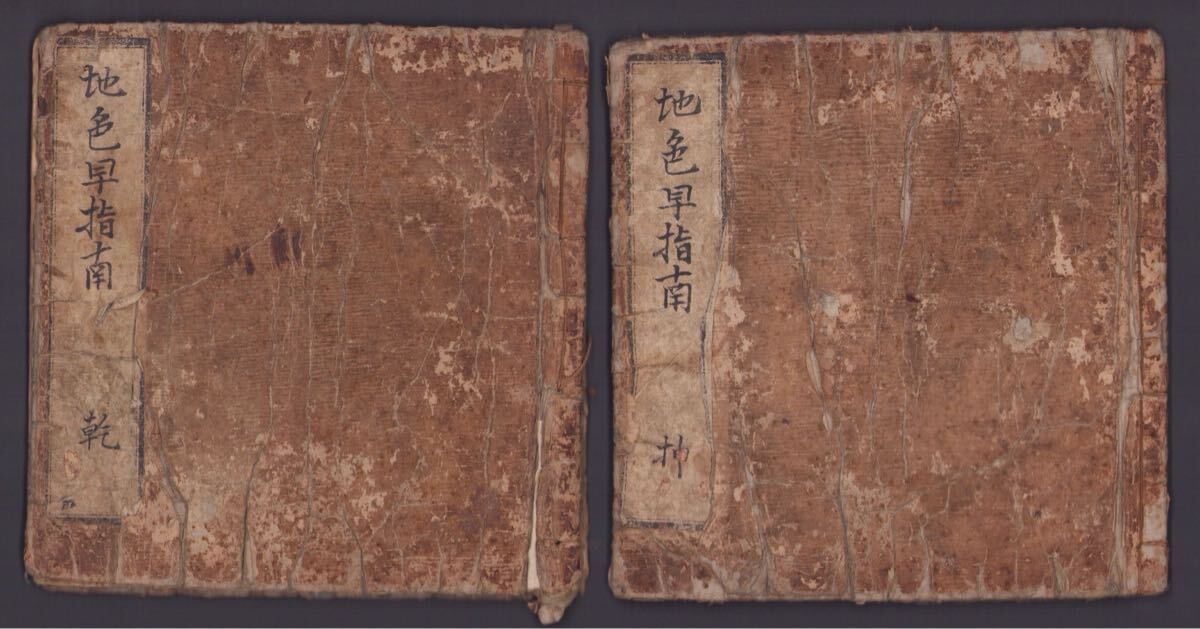 地色早指南
乾
地色早指南
坤